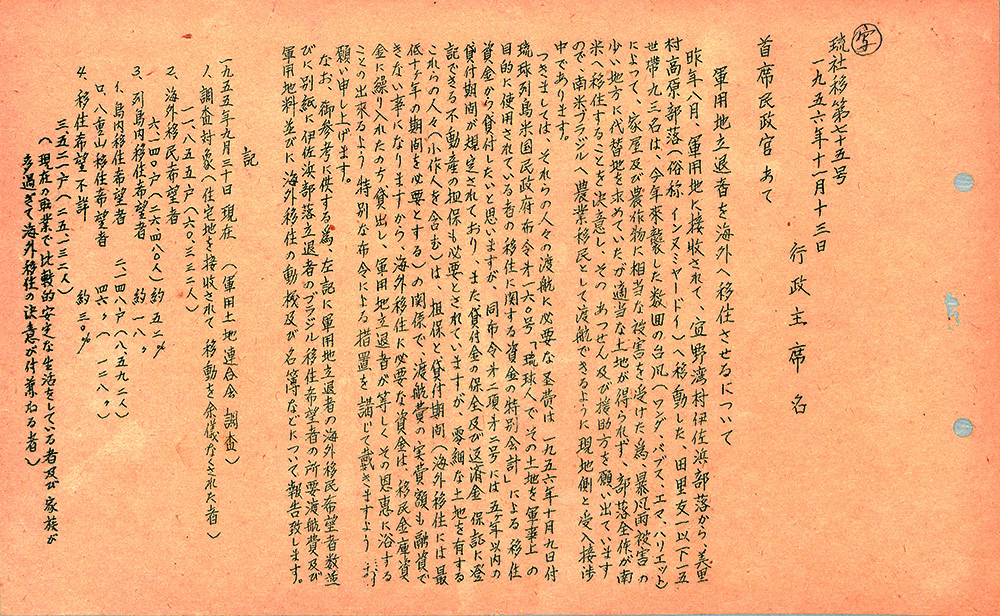 写
琉社移第七十五号
一九五六年十一月十三日
行政主席名
首席民政官あて
軍用地立退者を海外へ移住させるについて
昨年八月、軍用地に接收されて、宜野湾村伊佐浜部落から、美里
村高原部落(俗称インヌミヤードイ)へ移動した、田里友一以下一五
世帯九三名は、今年來襲した数回の台風(ワンダ、バブス、エマ、ハリエット)
によって、家屋及び農作物に相当な被害を受けた為、暴風雨被害の
少い地方に代替地を求めていたが適当な土地が得られず、部落全体が南
米へ移住することを決意し、そのあつせん及び援助方を願い出ています
ので、南米ブラジルへ農業移民として渡航できるように現地側と受入接渉
中であります。
つきましては、それらの人々の渡航に必要な経費は、一九五六年十月九日付
琉球列島米国民政府布令才一六〇号「琉球人で、その土地を軍事上の
目的に使用されている者の移住に関する資金の特別会計」による移住
資金から貸付したいと思いますが、同布令才二項才二号には五ヶ年以内の
貸付期間が規定されており、また貸付金の保全及び返済金保証に登
記できる不動産の担保も必要とされていますが、零細な土地を有する
これらの人々(小作人を含む)は、担保と貸付期間(海外移住には最
低十ヶ年の期間を必要とする)の関係で、渡航費の実費額も融資で
きない事になりますから、海外移住に必要な資金は、移民金庫資
金に繰り入れたのち貸出し、軍用地立退者が等しくその恩惠に浴する
ことの出来るよう特別な布令による措置を講じて戴きますよう
願い申し上げます。
なお、御参考に供する為、左記に軍用地立退者の海外移民希望者数並
びに別紙に伊佐浜部落立退者のブラジル移住希望者の所要渡航費及び
軍用地料並びに海外移住の動機及び名簿などについて報告致します。
記
一九五五年九月三十日現在(軍用土地連合会調査)
1、調査対象(住宅地を接收されて移動を余儀なくされた者)
一一、八五五戸(六〇、三三二人)
2、海外移民希望者
六一四〇戸(二六、四八〇人) 約五二%
3、列島内移住希望者 約一八〃
イ、島内移住希望者 二一四八戸(八、五九二人)
ロ、八重山移住希望者 四六〃(一二八〃)
4、移住希望不詳 約三〇%
三五二一戸(二五一三二人)
(現在の職業で比較的安定な生活をしている者及び家族が
多過ぎて海外移住の決意が付兼ねる者)